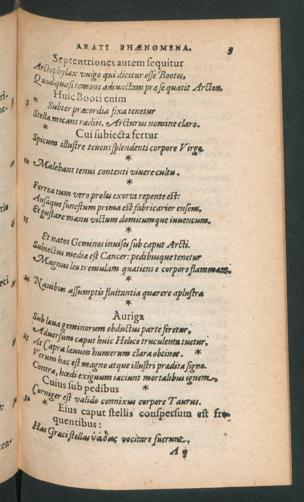 ARATI PHÆNOMENA. 9
Septentriones autem sequitur
Arctophylax vulgo qui dicitur esse Bootes,
Quod quasi temone adiunctam præ se quatit Arcton.
Huic Booti enim
5 *
Subter præcordia fixa tenetur
Stella micans radiis, Arcturus nomine claro.
Cui subiecta fertur
Spicum illustre tenens splendenti corpore Virgo.
*
10 Malebant tenui contenti vivere cultu.
*
Ferrea tum vero proles exorta repente est:
Ausaque funestum prima est fabricarier ensem,
15 Et gustare manu victum domitumque iuvencum.
*
Et natos Geminos invises sub caput Arcti.
Subiectus mediæ est Cancer: pedibusque tenetur
Magnus leo tremulam quatiens e corpore flammam.
*
20 Navibus assumptis fluitantia quærere aplustra
*
Auriga
Sub læva geminorum obductus parte feretur,
Adversum caput huic Helice truculenta tuetur.
25 At Capra lævum humerum clara obtinet. *
Verum hæc est magno atque illustri prædita signo.
Contra, hœdi exiguum iaciunt mortalibus ignem.
Cuius sub pedibus *
Corniger est valido connixus corpore Taurus.
30 Eius caput stellis conspersum est fre
quentibus:
Has Græci stellas ὑάδας vocitare suerunt.
A